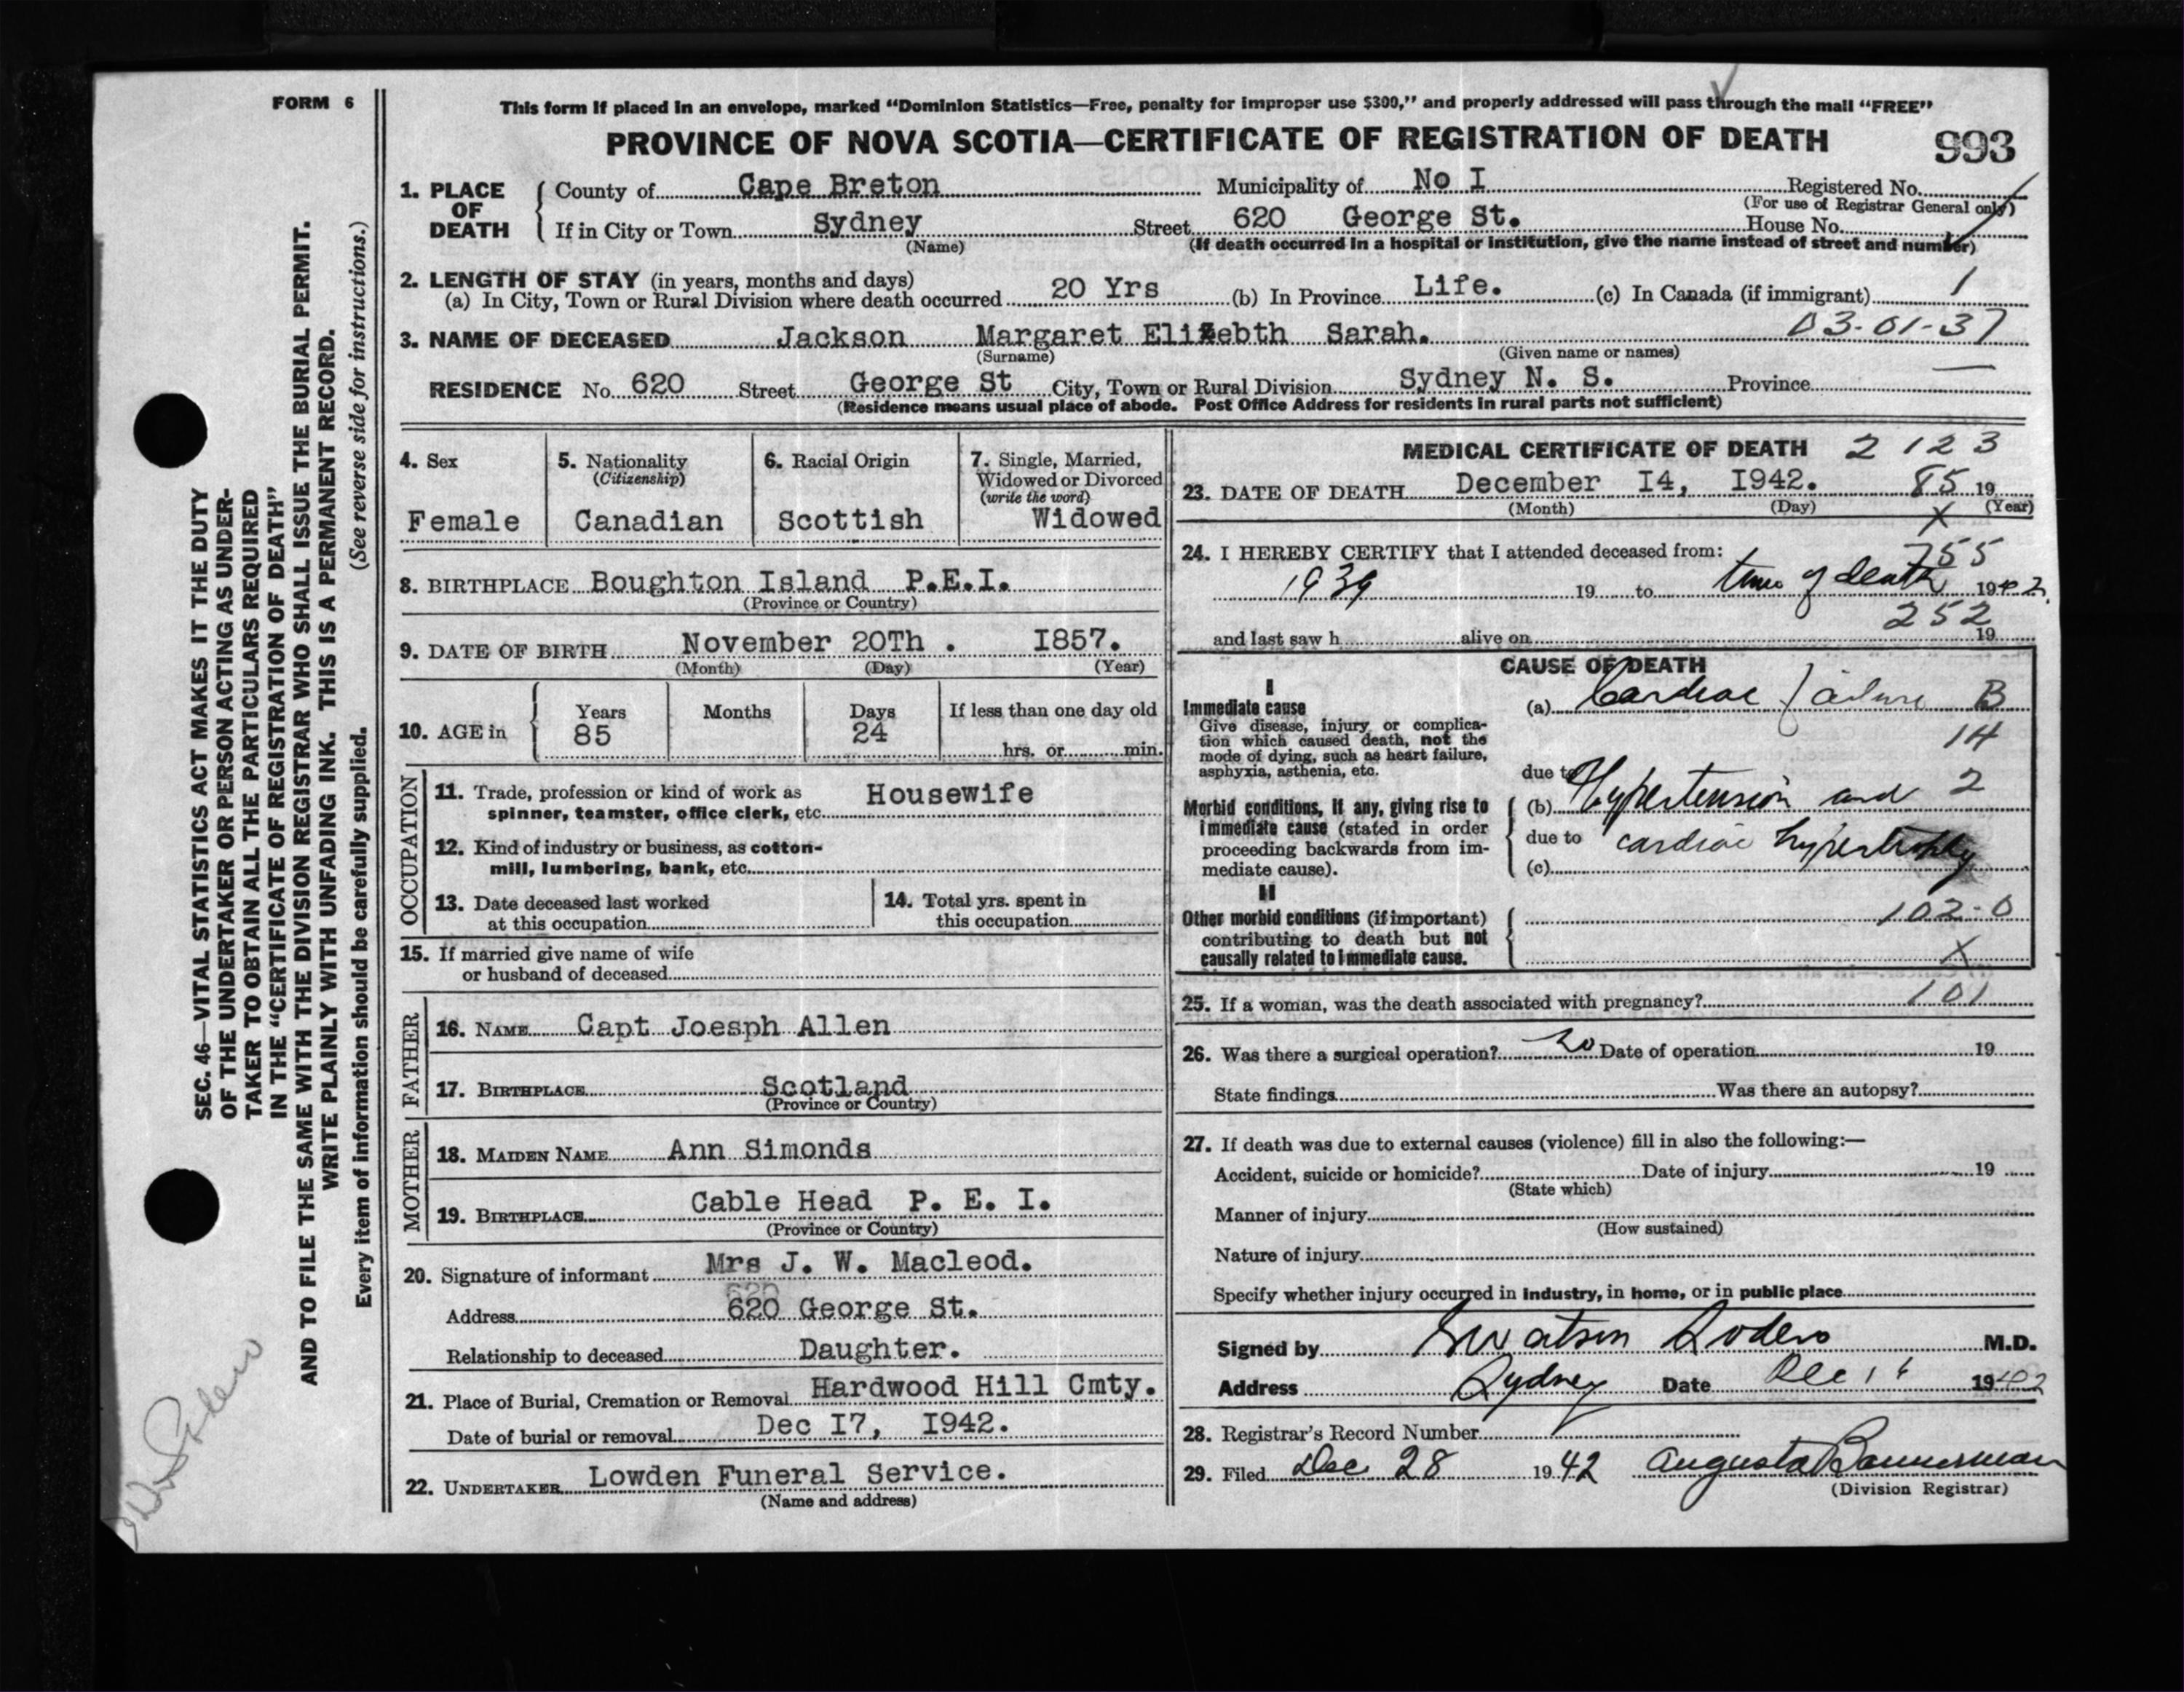 FORM 6
This form if placed in an envelope, marked "Dominion Statistics—Free, penalty for improper use $300," and properly addressed will pass through the mail "FREE"
PROVINCE OF NOVA SCOTIA—CERTIFICATE OF REGISTRATION OF DEATH 993
1. PLACE OF DEATH
County of Cape Breton Municipality of No I Registered No.
(For use of Registrar General only)
If in City or Town Sydney Street 620 George St. House No.
(Name) (If death occurred in a hospital or institution, give the name instead of street and number)
2. LENGTH OF STAY (in years, months and days)
(a) In City, Town or Rural Division where death occurred 20 Yrs (b) In Province Life. (c) In Canada (if immigrant) 1
3. NAME OF DECEASED Jackson Margaret Elizebth Sarah. 03-01-37
(Surname) (Given name or names)
RESIDENCE No. 620 Street George St City, Town or Rural Division Sydney N. S. Province —
(Residence means usual place of abode. Post Office Address for residents in rural parts not sufficient)
4. Sex
Female
5. Nationality
(Citizenship)
Canadian
6. Racial Origin
Scottish
7. Single, Married,
Widowed or Divorced
(write the word)
Widowed
8. BIRTHPLACE Boughton Island P.E.I.
(Province or Country)
9. DATE OF BIRTH November 20Th . I857.
(Month) (Day) (Year)
10. AGE in Years Months Days If less than one day old
85 24 hrs. or min.
OCCUPATION
11. Trade, profession or kind of work as Housewife
spinner, teamster, office clerk, etc.
12. Kind of industry or business, as cotton-
mill, lumbering, bank, etc.
13. Date deceased last worked
at this occupation
14. Total yrs. spent in
this occupation
15. If married give name of wife
or husband of deceased
FATHER
16. NAME Capt Joesph Allen
17. BIRTHPLACE Scotland
(Province or Country)
MOTHER
18. MAIDEN NAME Ann Simonds
19. BIRTHPLACE Cable Head P. E. I.
(Province or Country)
20. Signature of informant Mrs J. W. Macleod.
Address 620 George St.
Relationship to deceased Daughter.
21. Place of Burial, Cremation or Removal Hardwood Hill Cmty.
Date of burial or removal Dec I7, I942.
22. UNDERTAKER Lowden Funeral Service.
(Name and address)
MEDICAL CERTIFICATE OF DEATH 2123
23. DATE OF DEATH December I4, I942. 85 19
(Month) (Day) X (Year)
24. I HEREBY CERTIFY that I attended deceased from: 755
1939 19 to time of death 1942
252
and last saw h alive on 19
CAUSE OF DEATH
I
Immediate cause (a) Cardiac failure B
Give disease, injury or complica-
tion which caused death, not the 14
mode of dying, such as heart failure,
asphyxia, asthenia, etc. due to
Morbid conditions, if any, giving rise to (b) Hypertension and 2
immediate cause (stated in order
proceeding backwards from im- due to cardiac hypertrophy
mediate cause). (c)
II
Other morbid conditions (if important) 102-0
contributing to death but not
causally related to immediate cause. X
25. If a woman, was the death associated with pregnancy? 101
26. Was there a surgical operation? no Date of operation 19
State findings Was there an autopsy?
27. If death was due to external causes (violence) fill in also the following:—
Accident, suicide or homicide? Date of injury 19
(State which)
Manner of injury
(How sustained)
Nature of injury
Specify whether injury occurred in industry, in home, or in public place
Signed by M.D.
Address Sydney Date Dec 16 1942
28. Registrar's Record Number
29. Filed Dec 28 1942 Augusta Bannerman
(Division Registrar)
SEC. 46—VITAL STATISTICS ACT MAKES IT THE DUTY
OF THE UNDERTAKER OR PERSON ACTING AS UNDER-
TAKER TO OBTAIN ALL THE PARTICULARS REQUIRED
IN THE "CERTIFICATE OF REGISTRATION OF DEATH"
AND TO FILE THE SAME WITH THE DIVISION REGISTRAR WHO SHALL ISSUE THE BURIAL PERMIT.
WRITE PLAINLY WITH UNFADING INK. THIS IS A PERMANENT RECORD.
Every item of information should be carefully supplied. (See reverse side for instructions.)